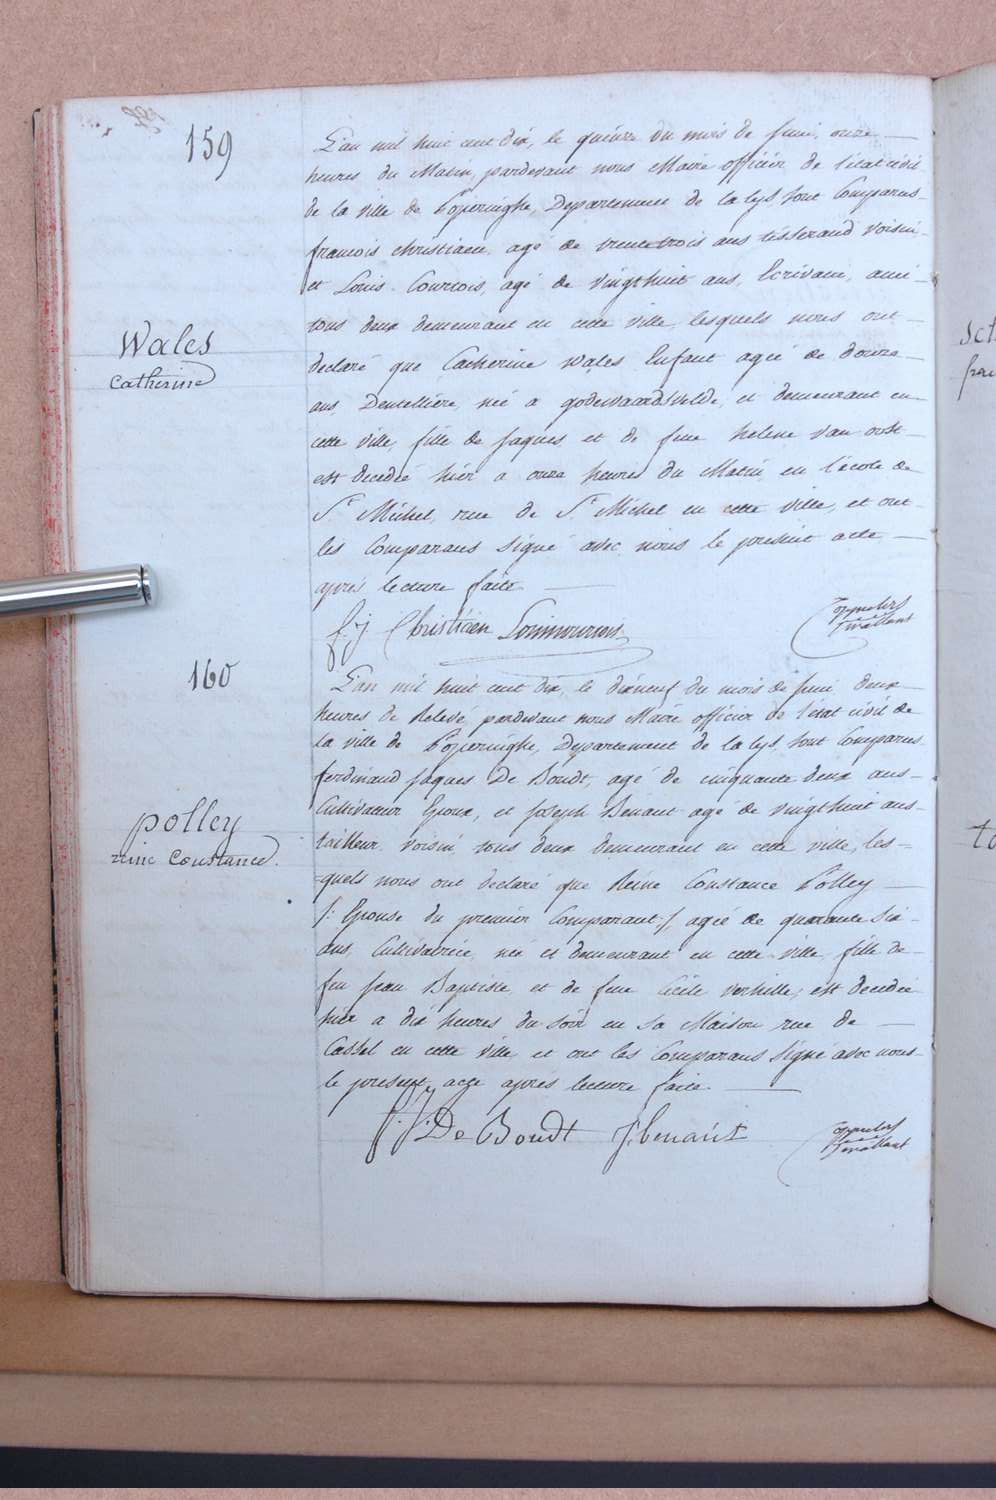 159
L'an mil huit cent dix, le quinze du mois de juin, onze
heures du Matin, pardevant nous Maire officier de l'état civil
de la ville de Poperinghe, Departement de la lys, sont Comparus
francois christiaen, agé de trente trois ans tisserand voisin
et Louis Courtois, agé de vingthuit ans, Ecrivain, ami
tous deux demeurant en cette ville, lesquels nous ont
Wales
Catherine
declaré que Catherine Wales Enfant agée de douze
ans, Dentelliere, née a godewaardsvelde, et demeurant en
cette ville, fille de jaques et de feue helene van oost
est decedée hier a onze heures du Matin en l'école de
St. Michel, rue de St. Michel en cette ville, et ont
les Comparans signé avec nous le present acte
après lecture faite
f j Christiaen
160
L'an mil huit cent dix, le dixneuf du mois de juin, deux
heures de Relevé, pardevant nous Maire officier de l'état civil de
la ville de Poperinghe, Departement de la lys, sont Comparus
ferdinand jaques De Boudt, agé de cinquante deux ans
Cultivateur Epoux, et joseph Benaut agé de vingthuit ans
polley
reine Constance
tailleur, voisin, tous deux demeurant en cette ville, les-
quels nous ont declaré que Reine Constance Polley
/: Epouse du premier Comparant :/ agée de quarante six
ans, Cultivatrice, née et demeurant en cette ville, fille de
feu jean Baptiste, et de feue Cécile verhille, est decedée
hier a dix heures du soir en sa Maison rue de
Cassel en cette ville et ont les Comparans signé avec nous
le present acte après lecture faite.
f. j. De Boudt j. benaut